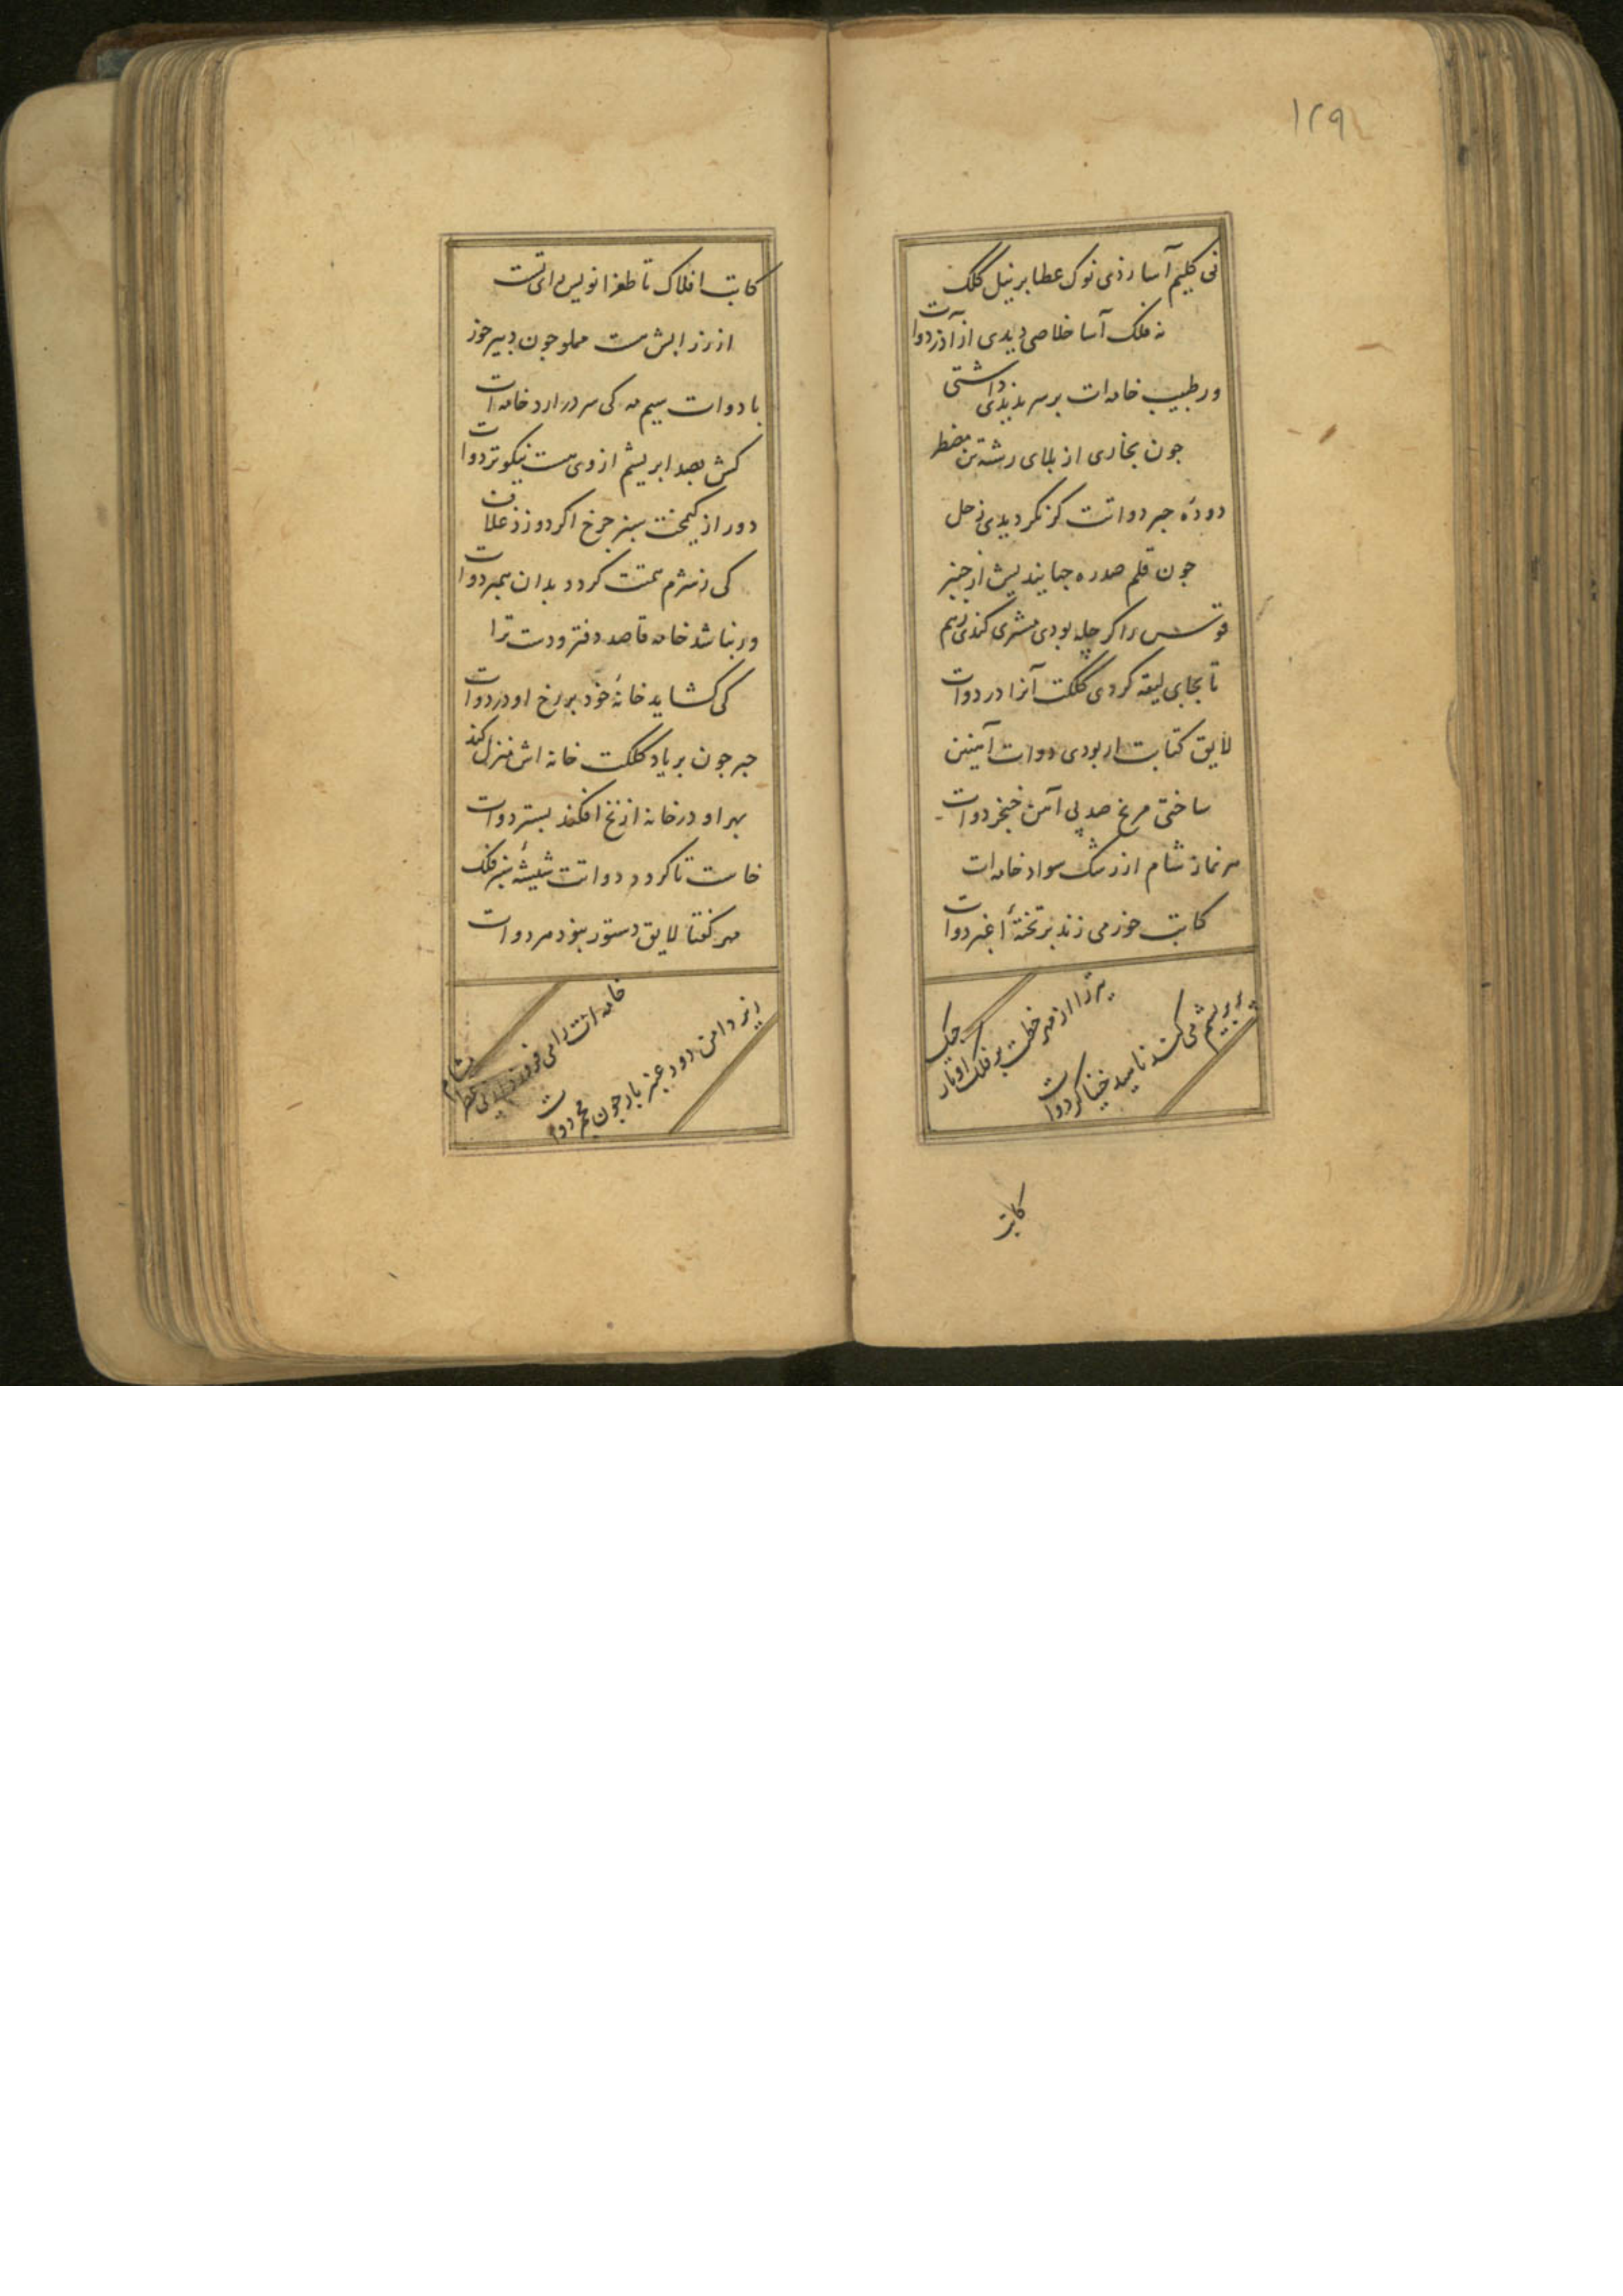 ۱۲۹
نی کلیم آسا زدی نوک عطا بر نیل کلک
نه فلک آسا خلاصی دیدی از آذر دوات
ور طبیب خامه‌ات بر سر ندیدی داشتی
جون بخاری از بلای رشته تن مضطر
دودهٔ حبر دواتت کر نکردیدی زحل
جون قلم صد ره جبا بندیش از جنبر
قوسش را کر چله بودی مشتری کندی زهم
تا بجای لیقه کردی کلکت آنرا در دوات
لایق کتابت ار بودی دوات آهنین
ساختی مریخ صد پی آهن خنجر دوات
هر نماز شام از رشک سواد خامه‌ات
کاتب خور می زند بر تختهٔ اغبر دوات
تیر تا از مهر خطت بر فلک اوتار جنک
بریشم می کند ناهید خنیاکر دوات
کاتب
کاتب افلاک تا طغرا نویس رای تست
از زر نابش هست مملو جون دبیر خور
با دوات سیم مه کی سر در ارد خامه‌ات
کش بصد ابریشم از وی هست نیکوتر دوات
دور از کیمخت سبز جرخ اکر دوزد غلاف
کی ز شرم همتت کردد بدان همبر دوات
ور نباشد خامه قاصد دفتر ودت ترا
کی کشاید خانهٔ خود بر رخ او در دوات
حبر جون بر یاد کلکت خانه اش منزل کند
بهر او در خانه از نخ افکند بستر دوات
خاست تا کردد دواتت شیشهٔ سبز فلک
مهر کفتا لایق دستور نبود هر دوات
خامه‌ات را می فروزد شام
زیر دامن دود عنبر بار جون مجمر دوات